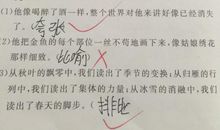 (1)他像喝醉了酒一样,整个世界对他来讲好像已经消失
了。(夸张)
(2)他把金鱼的每个部位一丝不苟地画下来,像姑娘绣花
那样细致。(比喻)
(3)从秋叶的飘零中,我们读出了季节的变换;从归雁的行
列中,我们读出了集体的力量;从冰雪的消融中,我们
读出了春天的脚步。(排比)